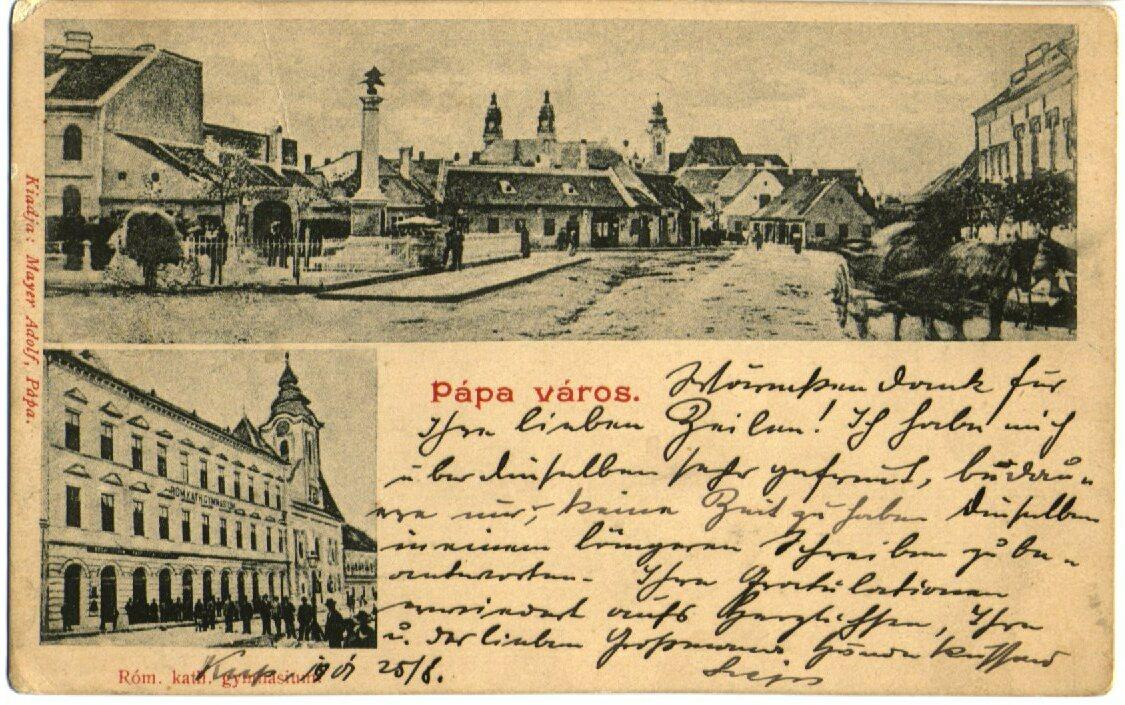 Kiadja: Mayer Adolf, Pápa.
RÓM. KATH. GYMNASIUM
Pápa város.
Wärmsten Dank für
Ihre lieben Zeilen! Ich habe mich
über dieselben sehr gefreut, bedau-
ere nur, keine Zeit zu haben dieselben
in einem längeren Schreiben zu be-
antworten. Ihre Gratulationen
erwiedert aufs Herzlichste, Ihre
u. der lieben Großmama Hände küssend
Róm. kath. gymnasium.
1901 25/8.